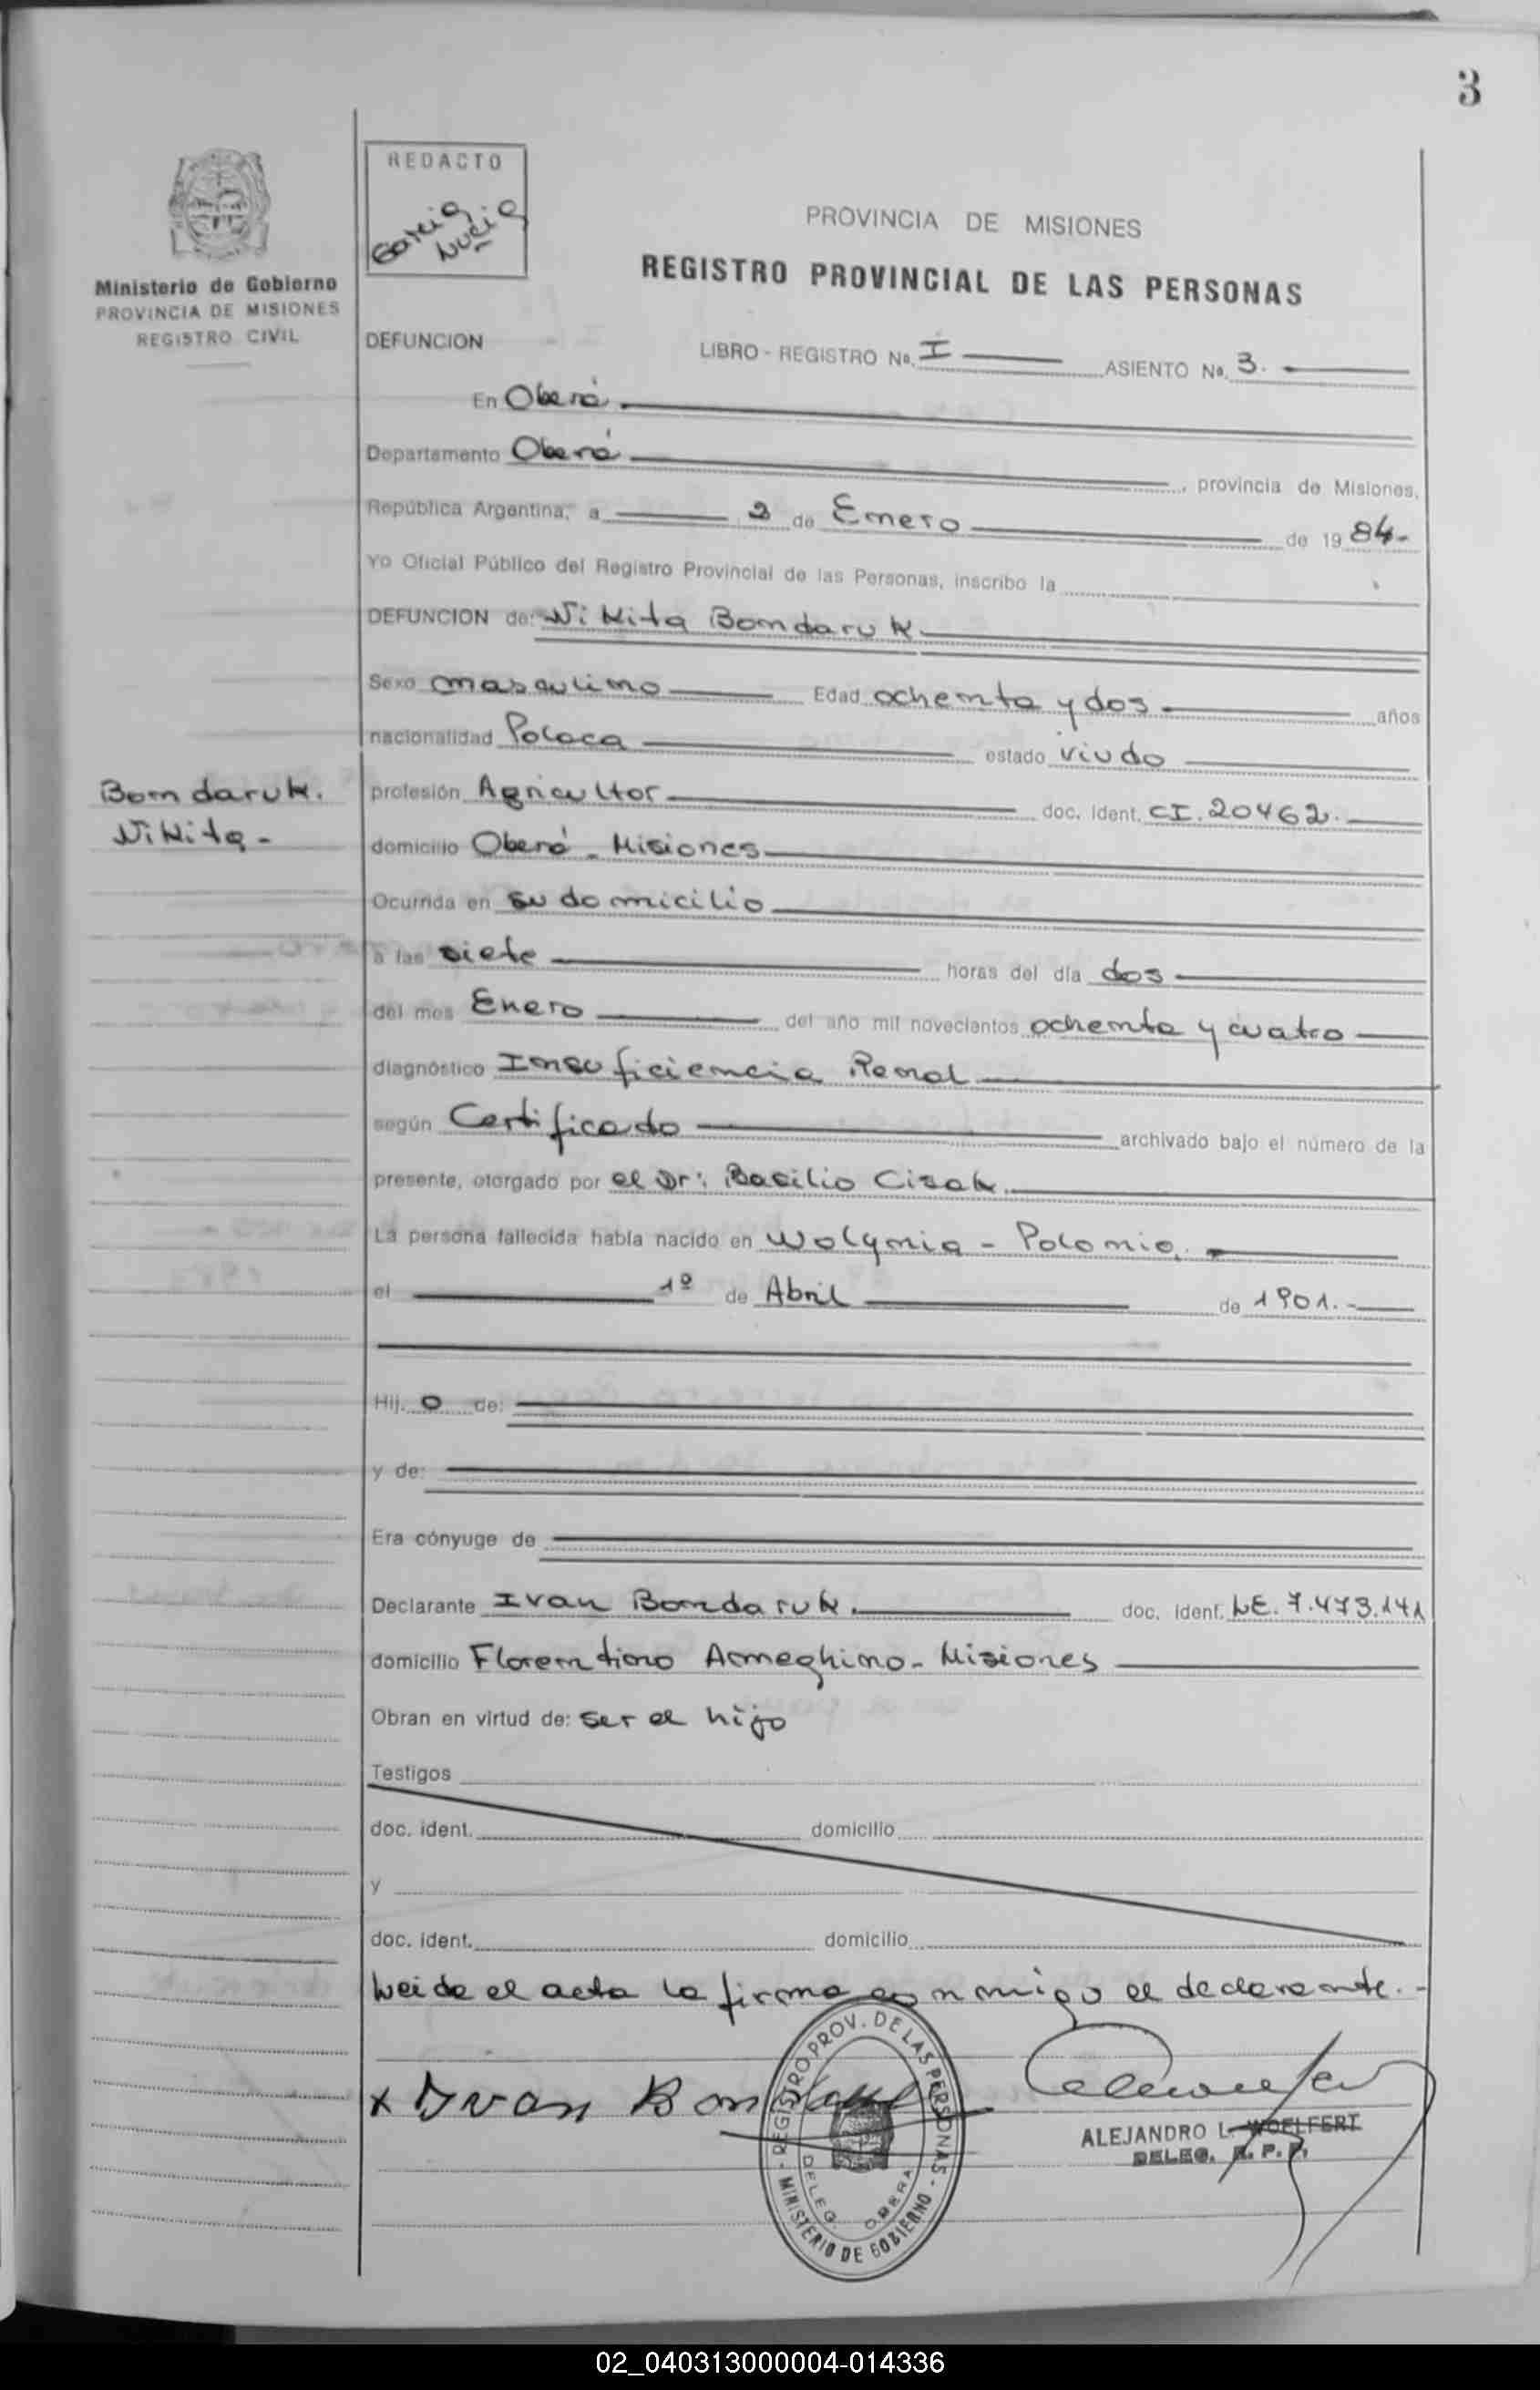 3
REDACTO
Garcia
Lucia
Ministerio de Gobierno
PROVINCIA DE MISIONES
REGISTRO CIVIL
PROVINCIA DE MISIONES
REGISTRO PROVINCIAL DE LAS PERSONAS
DEFUNCION LIBRO - REGISTRO No. I ASIENTO No. 3.
En Oberá
Departamento Oberá, provincia de Misiones,
República Argentina, a 2 de Enero de 1984.-
Yo Oficial Público del Registro Provincial de las Personas, inscribo la
DEFUNCION de: Nikita Bondaruk
Sexo masculino Edad ochenta y dos años
nacionalidad Polaca estado viudo
Bondaruk.
Nikita-
profesión Agricultor doc. ident. CI. 20462.
domicilio Oberá - Misiones
Ocurrida en su domicilio
a las siete horas del día dos
del mes Enero del año mil novecientos ochenta y cuatro
diagnóstico Insuficiencia Renal
según Certificado archivado bajo el número de la
presente, otorgado por el Dr: Basilio Cizak.
La persona fallecida había nacido en Wolynia - Polonia.
el 1º de Abril de 1901.-
Hij. o de:
y de:
Era cónyuge de
Declarante Ivan Bondaruk. doc. ident. LE. 7.473.141
domicilio Florentino Ameghino - Misiones
Obran en virtud de: ser el hijo
Testigos
doc. ident. domicilio
y
doc. ident. domicilio
Leida el acta la firma conmigo el declarante.-
x Ivan Bondaruk
REGISTRO PROV. DE LAS PERSONAS - MINISTERIO DE GOBIERNO -
DELEG. OBERA
ALEJANDRO L. WOELFERT
DELEG. R. P. P.
02_040313000004-014336